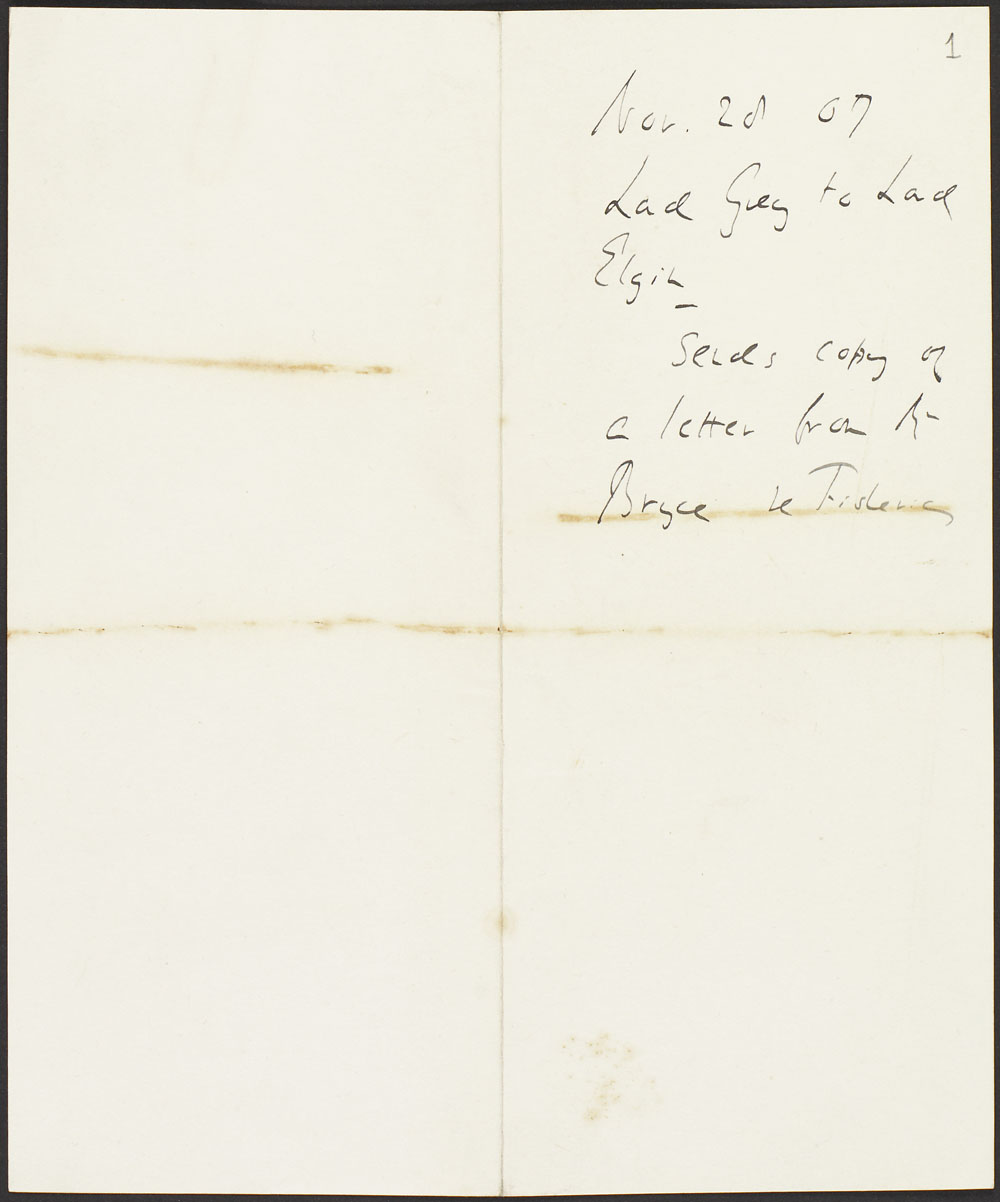 1
Nov. 28 07
Lord Grey to Lord
Elgin_
Sends copy of
a letter from Mr
Bryce re Fisheries